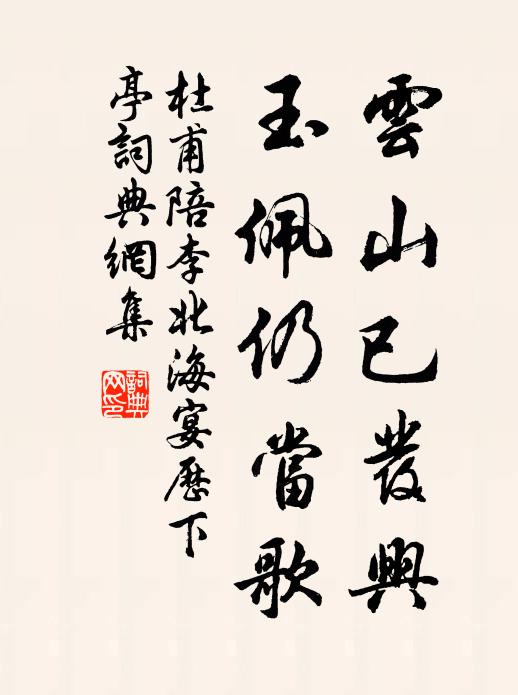 雲山已發興
玉佩仍當歌
杜甫陪李北海宴歷下
亭詞典網集
詞典
网印